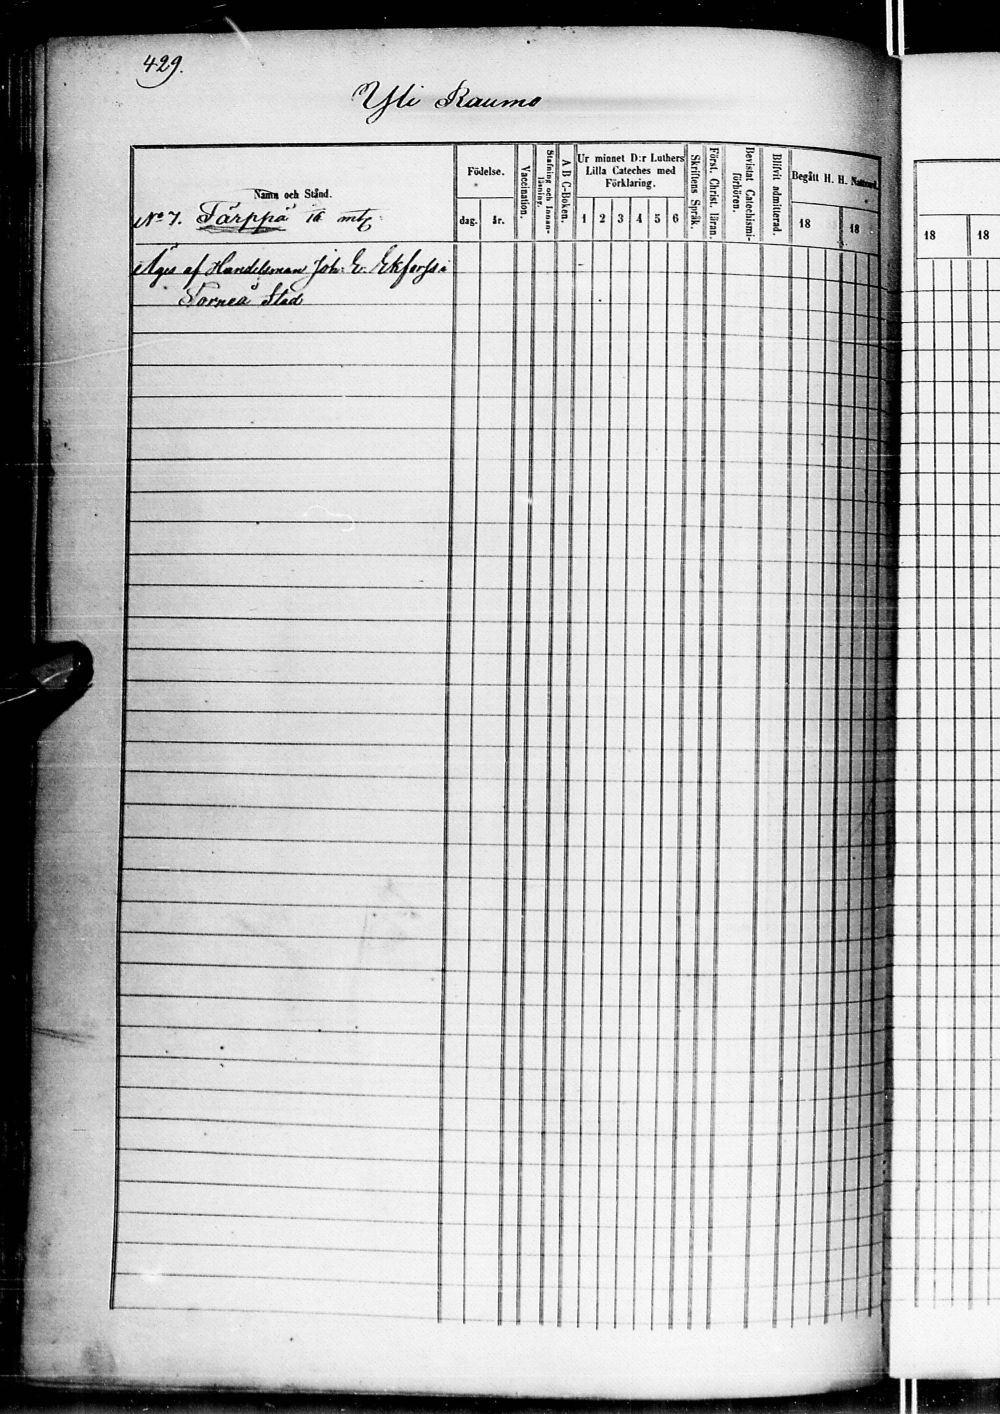 429.
Yli Raumo
Namn och Stånd.
Födelse.
dag.
år.
Vaccination.
Stafning och Innan-
läsning.
A B C-Boken.
Ur minnet D:r Luthers
Lilla Cateches med
Förklaring.
1 2 3 4 5 6
Skriftens Språk.
Först. Christ. läran.
Bevistat Catechismi-
förhören.
Blifvit admitterad.
Begått H. H. Nattvard.
18 18
18 18
No 7. Tärppä mtl.
Äges af Handelsman Joh: E. Ekforss i
Torneå Stad